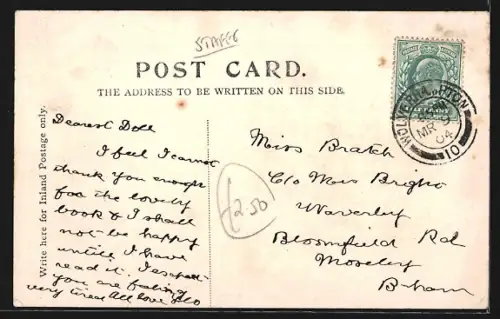 STAFFS
POST CARD.
THE ADDRESS TO BE WRITTEN ON THIS SIDE.
Write here for Inland Postage only.
Dearest Doll
I feel I cannot
thank you enough
for the lovely
book & I shall
not be happy
until I have
read it. I expect
you are feeling
very tired All love
£2.50
Miss Bratch
C/o Miss Bright
Waverley
Bloomfield Rd
Moseley
B-ham
WOLVERHAMPTON
MR 9
04
10